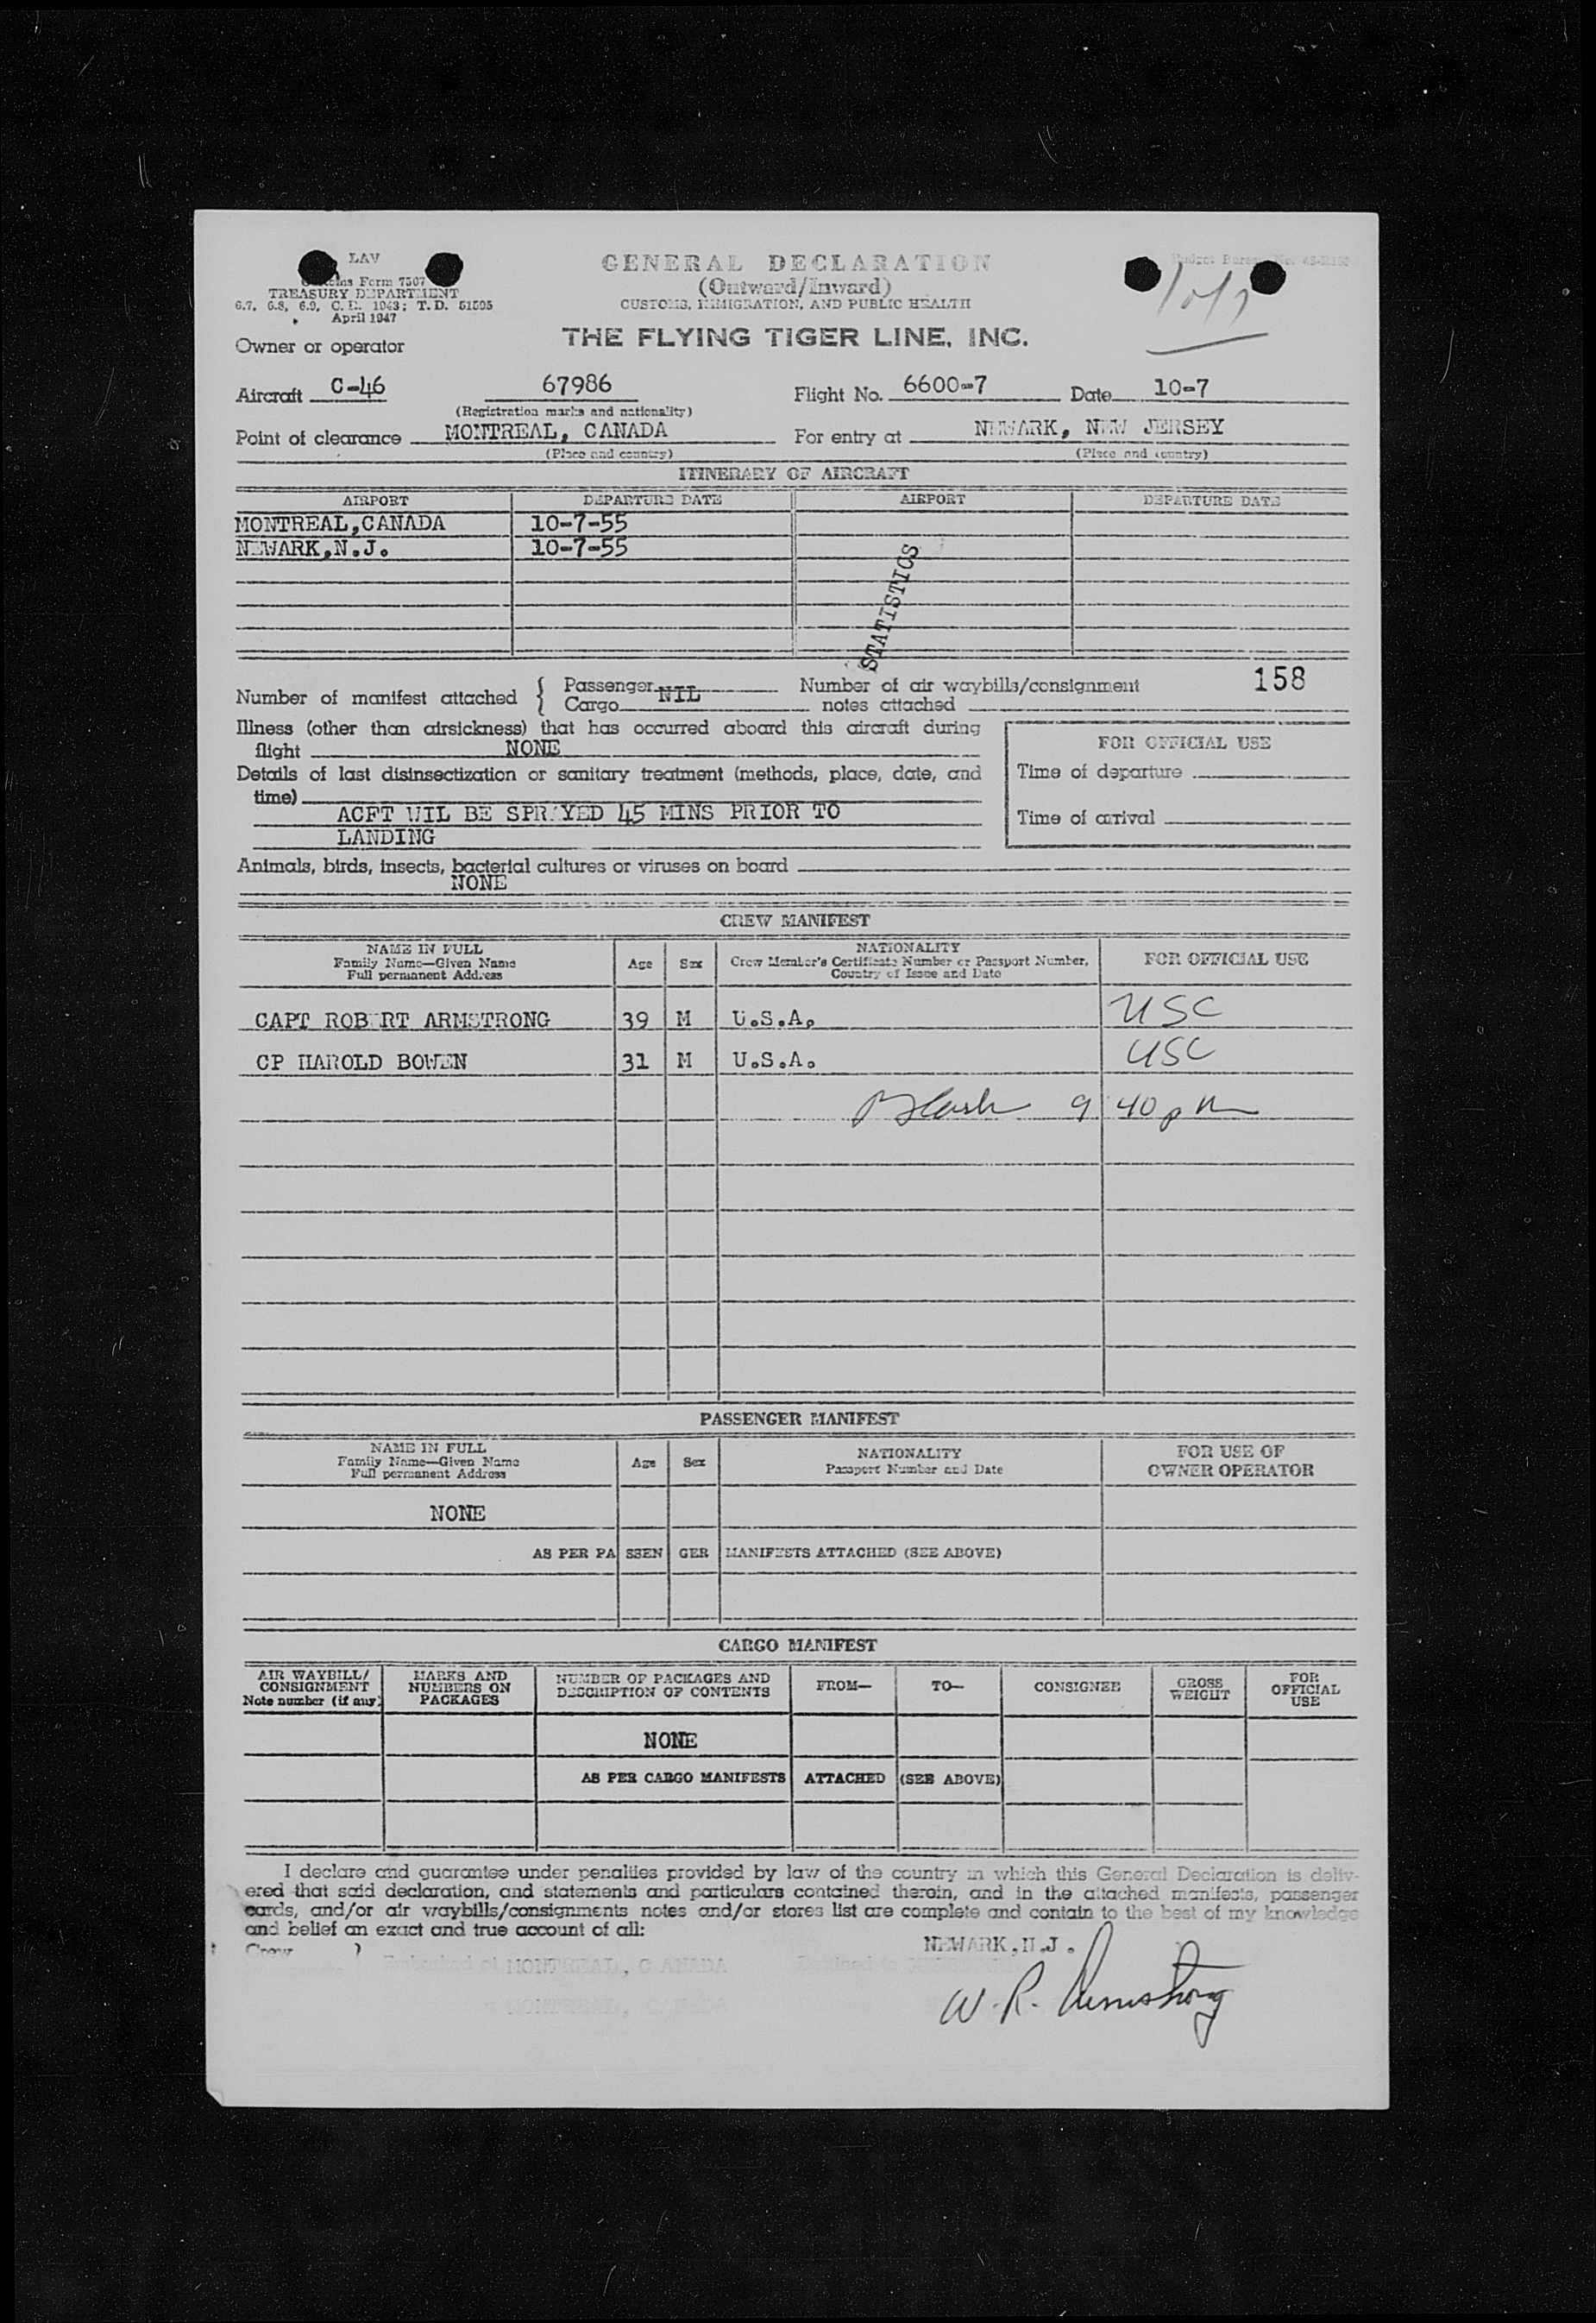 LAV
Customs Form 7507
TREASURY DEPARTMENT
6.7, 6.8, 6.9, C. R. 1943; T. D. 51595
April 1947
GENERAL DECLARATION
(Outward/Inward)
CUSTOMS, IMMIGRATION, AND PUBLIC HEALTH
THE FLYING TIGER LINE, INC.
10/7
Owner or operator
Aircraft C-46 67986 Flight No. 6600-7 Date 10-7
(Registration marks and nationality)
Point of clearance MONTREAL, CANADA For entry at NEWARK, NEW JERSEY
(Place and country) (Place and country)
ITINERARY OF AIRCRAFT
AIRPORT DEPARTURE DATE AIRPORT DEPARTURE DATE
MONTREAL,CANADA 10-7-55
NEWARK,N.J. 10-7-55
STATISTICS
158
Number of manifest attached { Passenger NIL Number of air waybills/consignment
Cargo notes attached
Illness (other than airsickness) that has occurred aboard this aircraft during
flight NONE
FOR OFFICIAL USE
Details of last disinsectization or sanitary treatment (methods, place, date, and
time)
ACFT WIL BE SPRAYED 45 MINS PRIOR TO
LANDING
Time of departure
Time of arrival
Animals, birds, insects, bacterial cultures or viruses on board
NONE
CREW MANIFEST
NAME IN FULL
Family Name—Given Name
Full permanent Address
Age Sex
NATIONALITY
Crew Member's Certificate Number or Passport Number,
Country of Issue and Date
FOR OFFICIAL USE
CAPT ROBERT ARMSTRONG 39 M U.S.A. USC
CP HAROLD BOWEN 31 M U.S.A. USC
9 40 pm
PASSENGER MANIFEST
NAME IN FULL
Family Name—Given Name
Full permanent Address
Age Sex
NATIONALITY
Passport Number and Date
FOR USE OF
OWNER OPERATOR
NONE
AS PER PASSENGER MANIFESTS ATTACHED (SEE ABOVE)
CARGO MANIFEST
AIR WAYBILL/
CONSIGNMENT
Note number (if any)
MARKS AND
NUMBERS ON
PACKAGES
NUMBER OF PACKAGES AND
DESCRIPTION OF CONTENTS
FROM— TO— CONSIGNEE
GROSS
WEIGHT
FOR
OFFICIAL
USE
NONE
AS PER CARGO MANIFESTS ATTACHED (SEE ABOVE)
I declare and guarantee under penalties provided by law of the country in which this General Declaration is deliv-
ered that said declaration, and statements and particulars contained therein, and in the attached manifests, passenger
cards, and/or air waybills/consignments notes and/or stores list are complete and contain to the best of my knowledge
and belief an exact and true account of all:
NEWARK,N.J.
Crew
Embarked at MONTREAL, CANADA
MONTREAL, CANADA
W. R. Armstrong